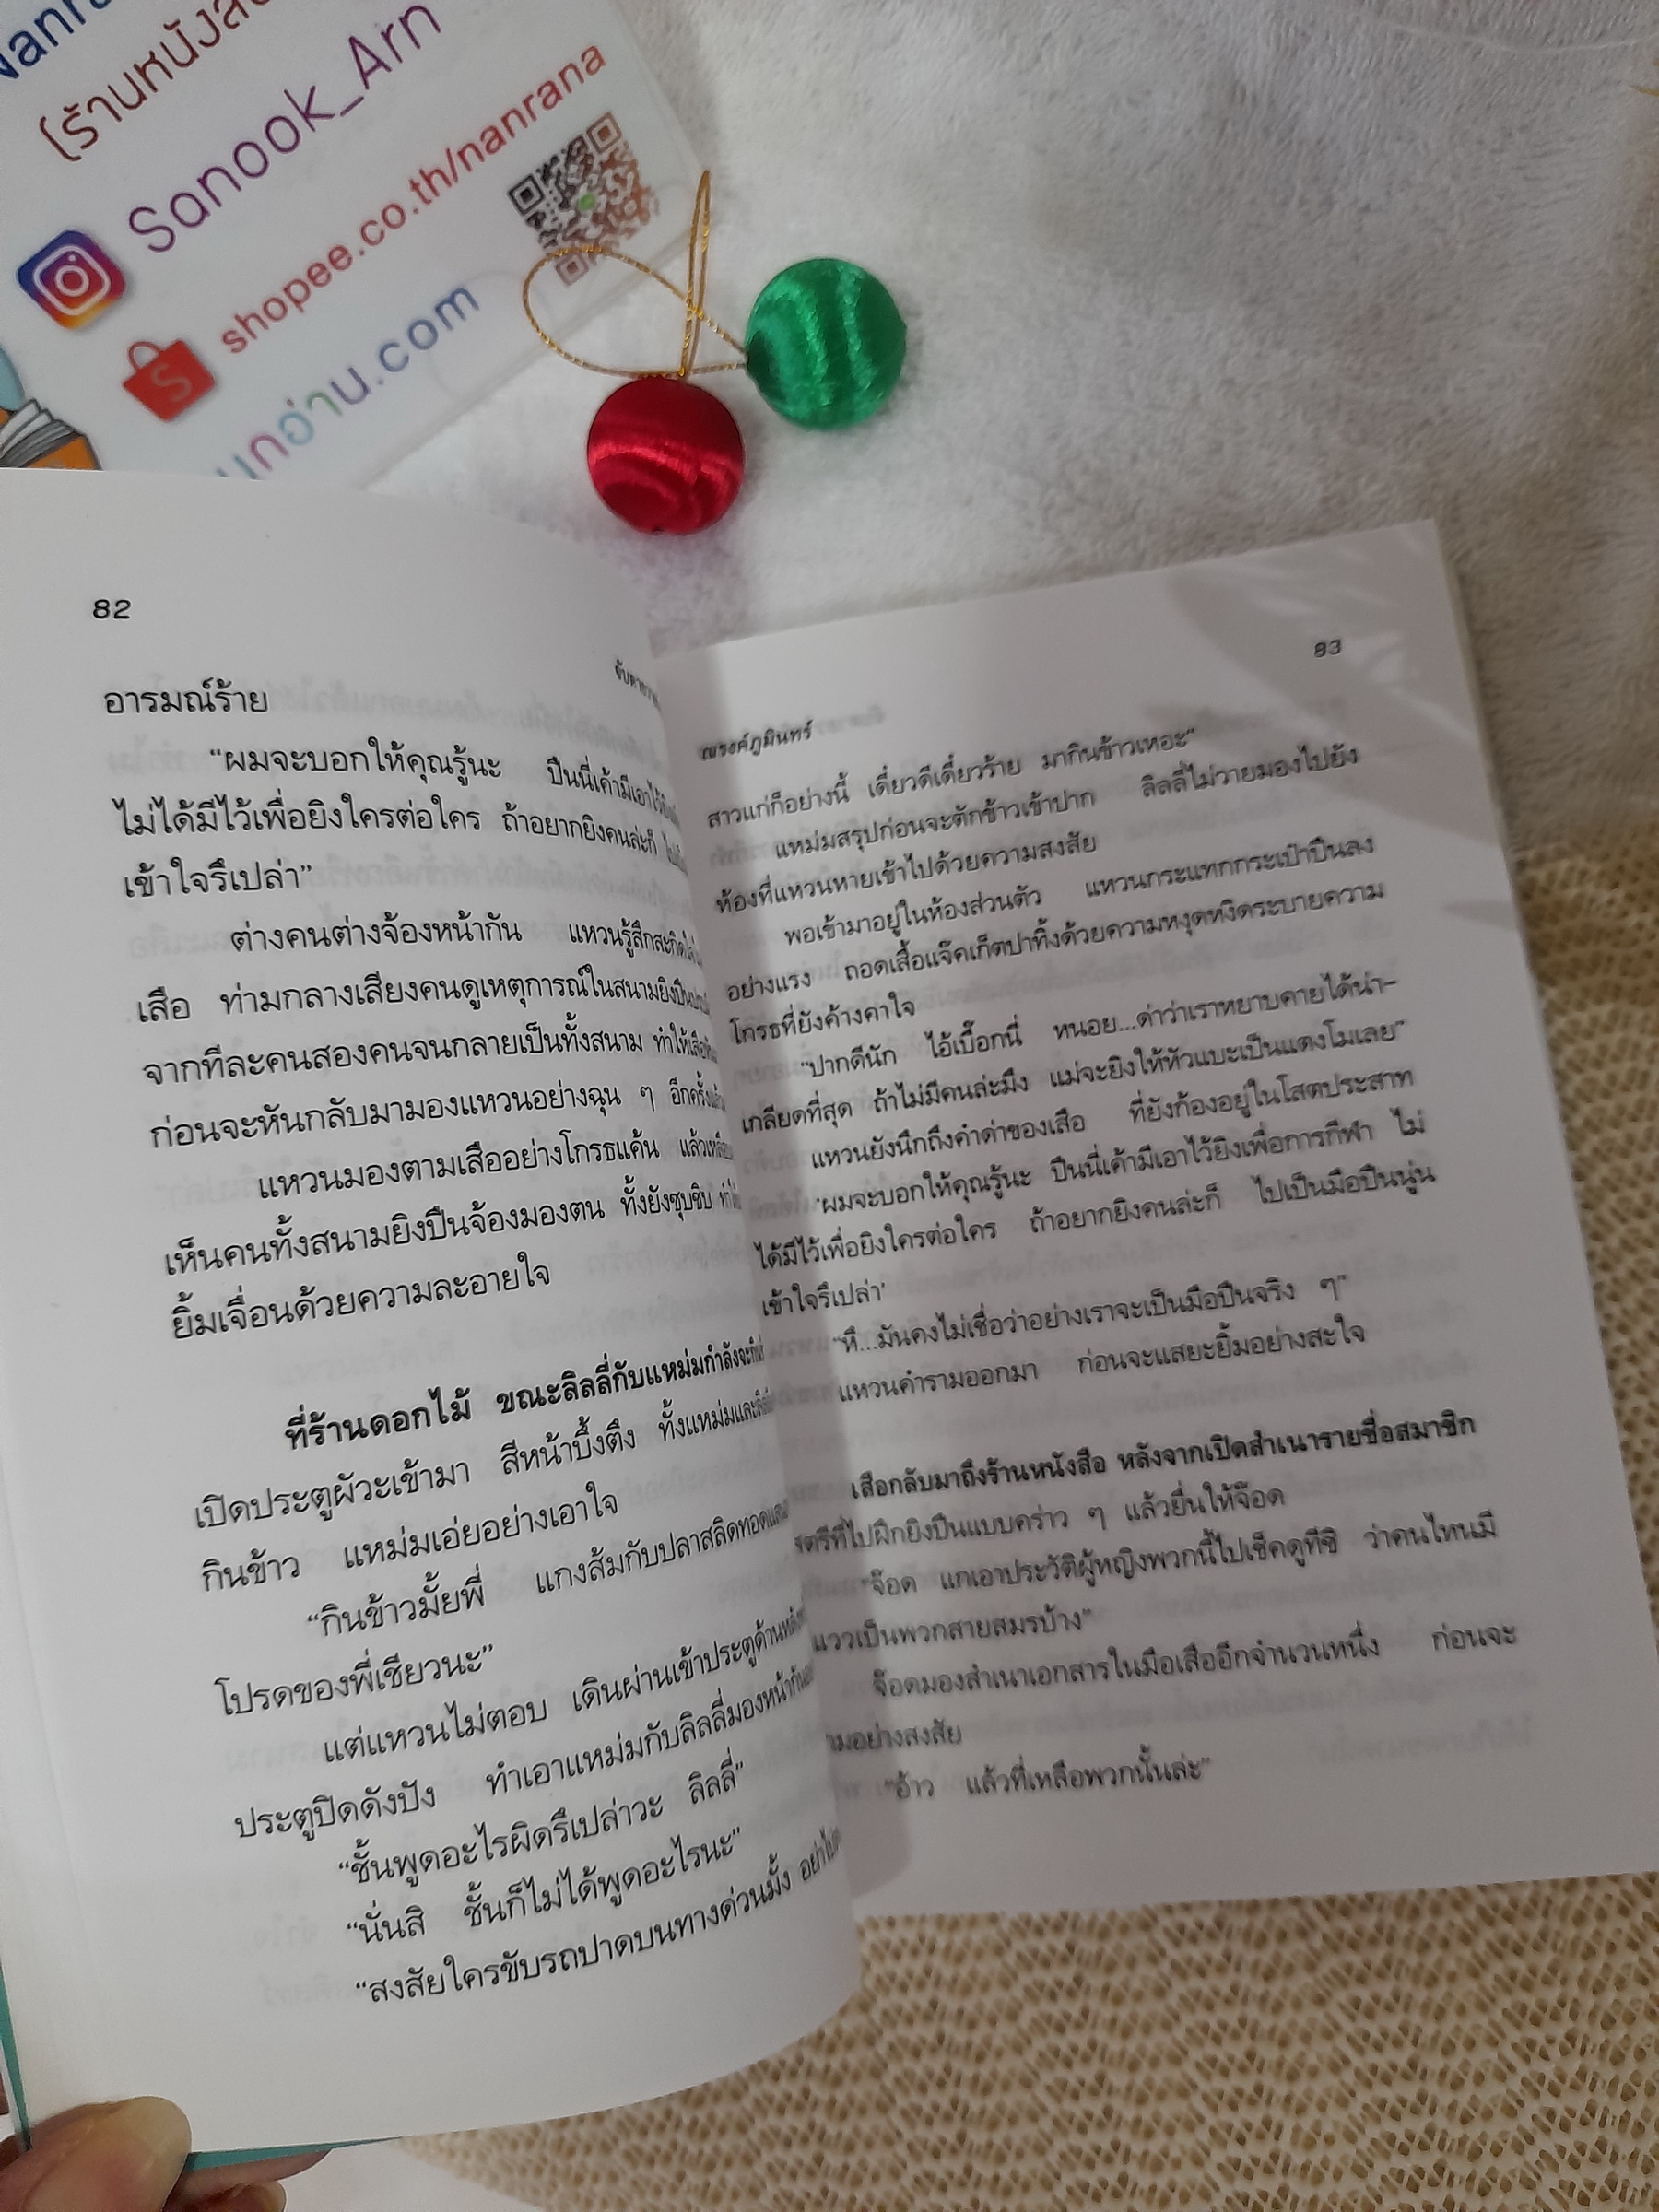 (ร้านหนัง
Sanook_Arn
shopee.co.th/nanrana
นกอ่าน.com
82
อารมณ์ร้าย
“ผมจะบอกให้คุณรู้นะ ปืนนี่เค้ามีเอาไว้
ไม่ได้มีไว้เพื่อยิงใครต่อใคร ถ้าอยากยิงคนล่ะก็
เข้าใจรึเปล่า”
ต่างคนต่างจ้องหน้ากัน แหวนรู้สึกสะกิดใจ
เสือ ท่ามกลางเสียงคนดูเหตุการณ์ในสนามยิงปืน
จากทีละคนสองคนจนกลายเป็นทั้งสนาม ทำให้เสือ
ก่อนจะหันกลับมามองแหวนอย่างฉุน ๆ อีกครั้ง
แหวนมองตามเสืออย่างโกรธแค้น แล้ว
เห็นคนทั้งสนามยิงปืนจ้องมองตน ทั้งยังซุบซิบ
ยิ้มเจื่อนด้วยความละอายใจ
ที่ร้านดอกไม้ ขณะลิลลี่กับแหม่มกำลังจะ
เปิดประตูผัวะเข้ามา สีหน้าบึ้งตึง ทั้งแหม่มและ
กินข้าว แหม่มเอ่ยอย่างเอาใจ
“กินข้าวมั้ยพี่ แกงส้มกับปลาสลิดทอด
โปรดของพี่เชียวนะ”
แต่แหวนไม่ตอบ เดินผ่านเข้าประตูด้านหลัง
ประตูปิดดังปัง ทำเอาแหม่มกับลิลลี่มองหน้ากัน
“ชั้นพูดอะไรผิดรึเปล่าวะ ลิลลี่”
“นั่นสิ ชั้นก็ไม่ได้พูดอะไรนะ”
“สงสัยใครขับรถปาดบนทางด่วนมั้ง
83
ณรงค์ภูมินทร์
สาวแก่ก็อย่างนี้ เดี่ยวดีเดี่ยวร้าย มากินข้าวเหอะ”
แหม่มสรุปก่อนจะตักข้าวเข้าปาก ลิลลี่ไม่วายมองไปยัง
ห้องที่แหวนหายเข้าไปด้วยความสงสัย
พอเข้ามาอยู่ในห้องส่วนตัว แหวนกระแทกกระเป๋าปืนลง
อย่างแรง ถอดเสื้อแจ๊คเก็ตปาทิ้งด้วยความหงุดหงิดระบายความ
โกรธที่ยังค้างคาใจ
“ปากดีนัก ไอ้เบื๊อกนี่ หนอย...ด่าว่าเราหยาบคายได้น่า-
เกลียดที่สุด ถ้าไม่มีคนล่ะมึง แม่จะยิงให้หัวแบะเป็นแตงโมเลย”
แหวนยังนึกถึงคำด่าของเสือ ที่ยังก้องอยู่ในโสตประสาท
‘ผมจะบอกให้คุณรู้นะ ปืนนี่เค้ามีเอาไว้ยิงเพื่อการกีฬา ไม่
ได้มีไว้เพื่อยิงใครต่อใคร ถ้าอยากยิงคนล่ะก็ ไปเป็นมือปืนนู่น
เข้าใจรึเปล่า’
“หึ...มันคงไม่เชื่อว่าอย่างเราจะเป็นมือปืนจริง ๆ”
แหวนคำรามออกมา ก่อนจะแสยะยิ้มอย่างสะใจ
เสือกลับมาถึงร้านหนังสือ หลังจากเปิดสำเนารายชื่อสมาชิก
สตรีที่ไปฝึกยิงปืนแบบคร่าว ๆ แล้วยื่นให้จ๊อด
“จ๊อด แกเอาประวัติผู้หญิงพวกนี้ไปเช็คดูทีซิ ว่าคนไหนมี
แววเป็นพวกสายสมรบ้าง”
จ๊อดมองสำเนาเอกสารในมือเสืออีกจำนวนหนึ่ง ก่อนจะ
ามอย่างสงสัย
“อ้าว แล้วที่เหลือพวกนั้นล่ะ”